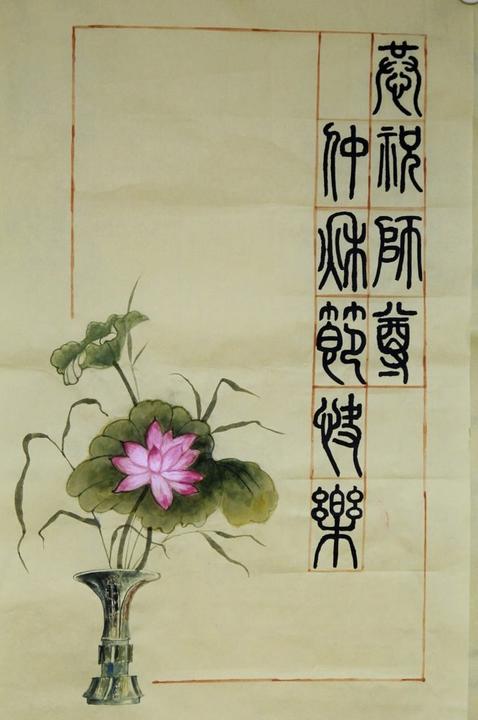 恭祝師尊
仲秋節快樂